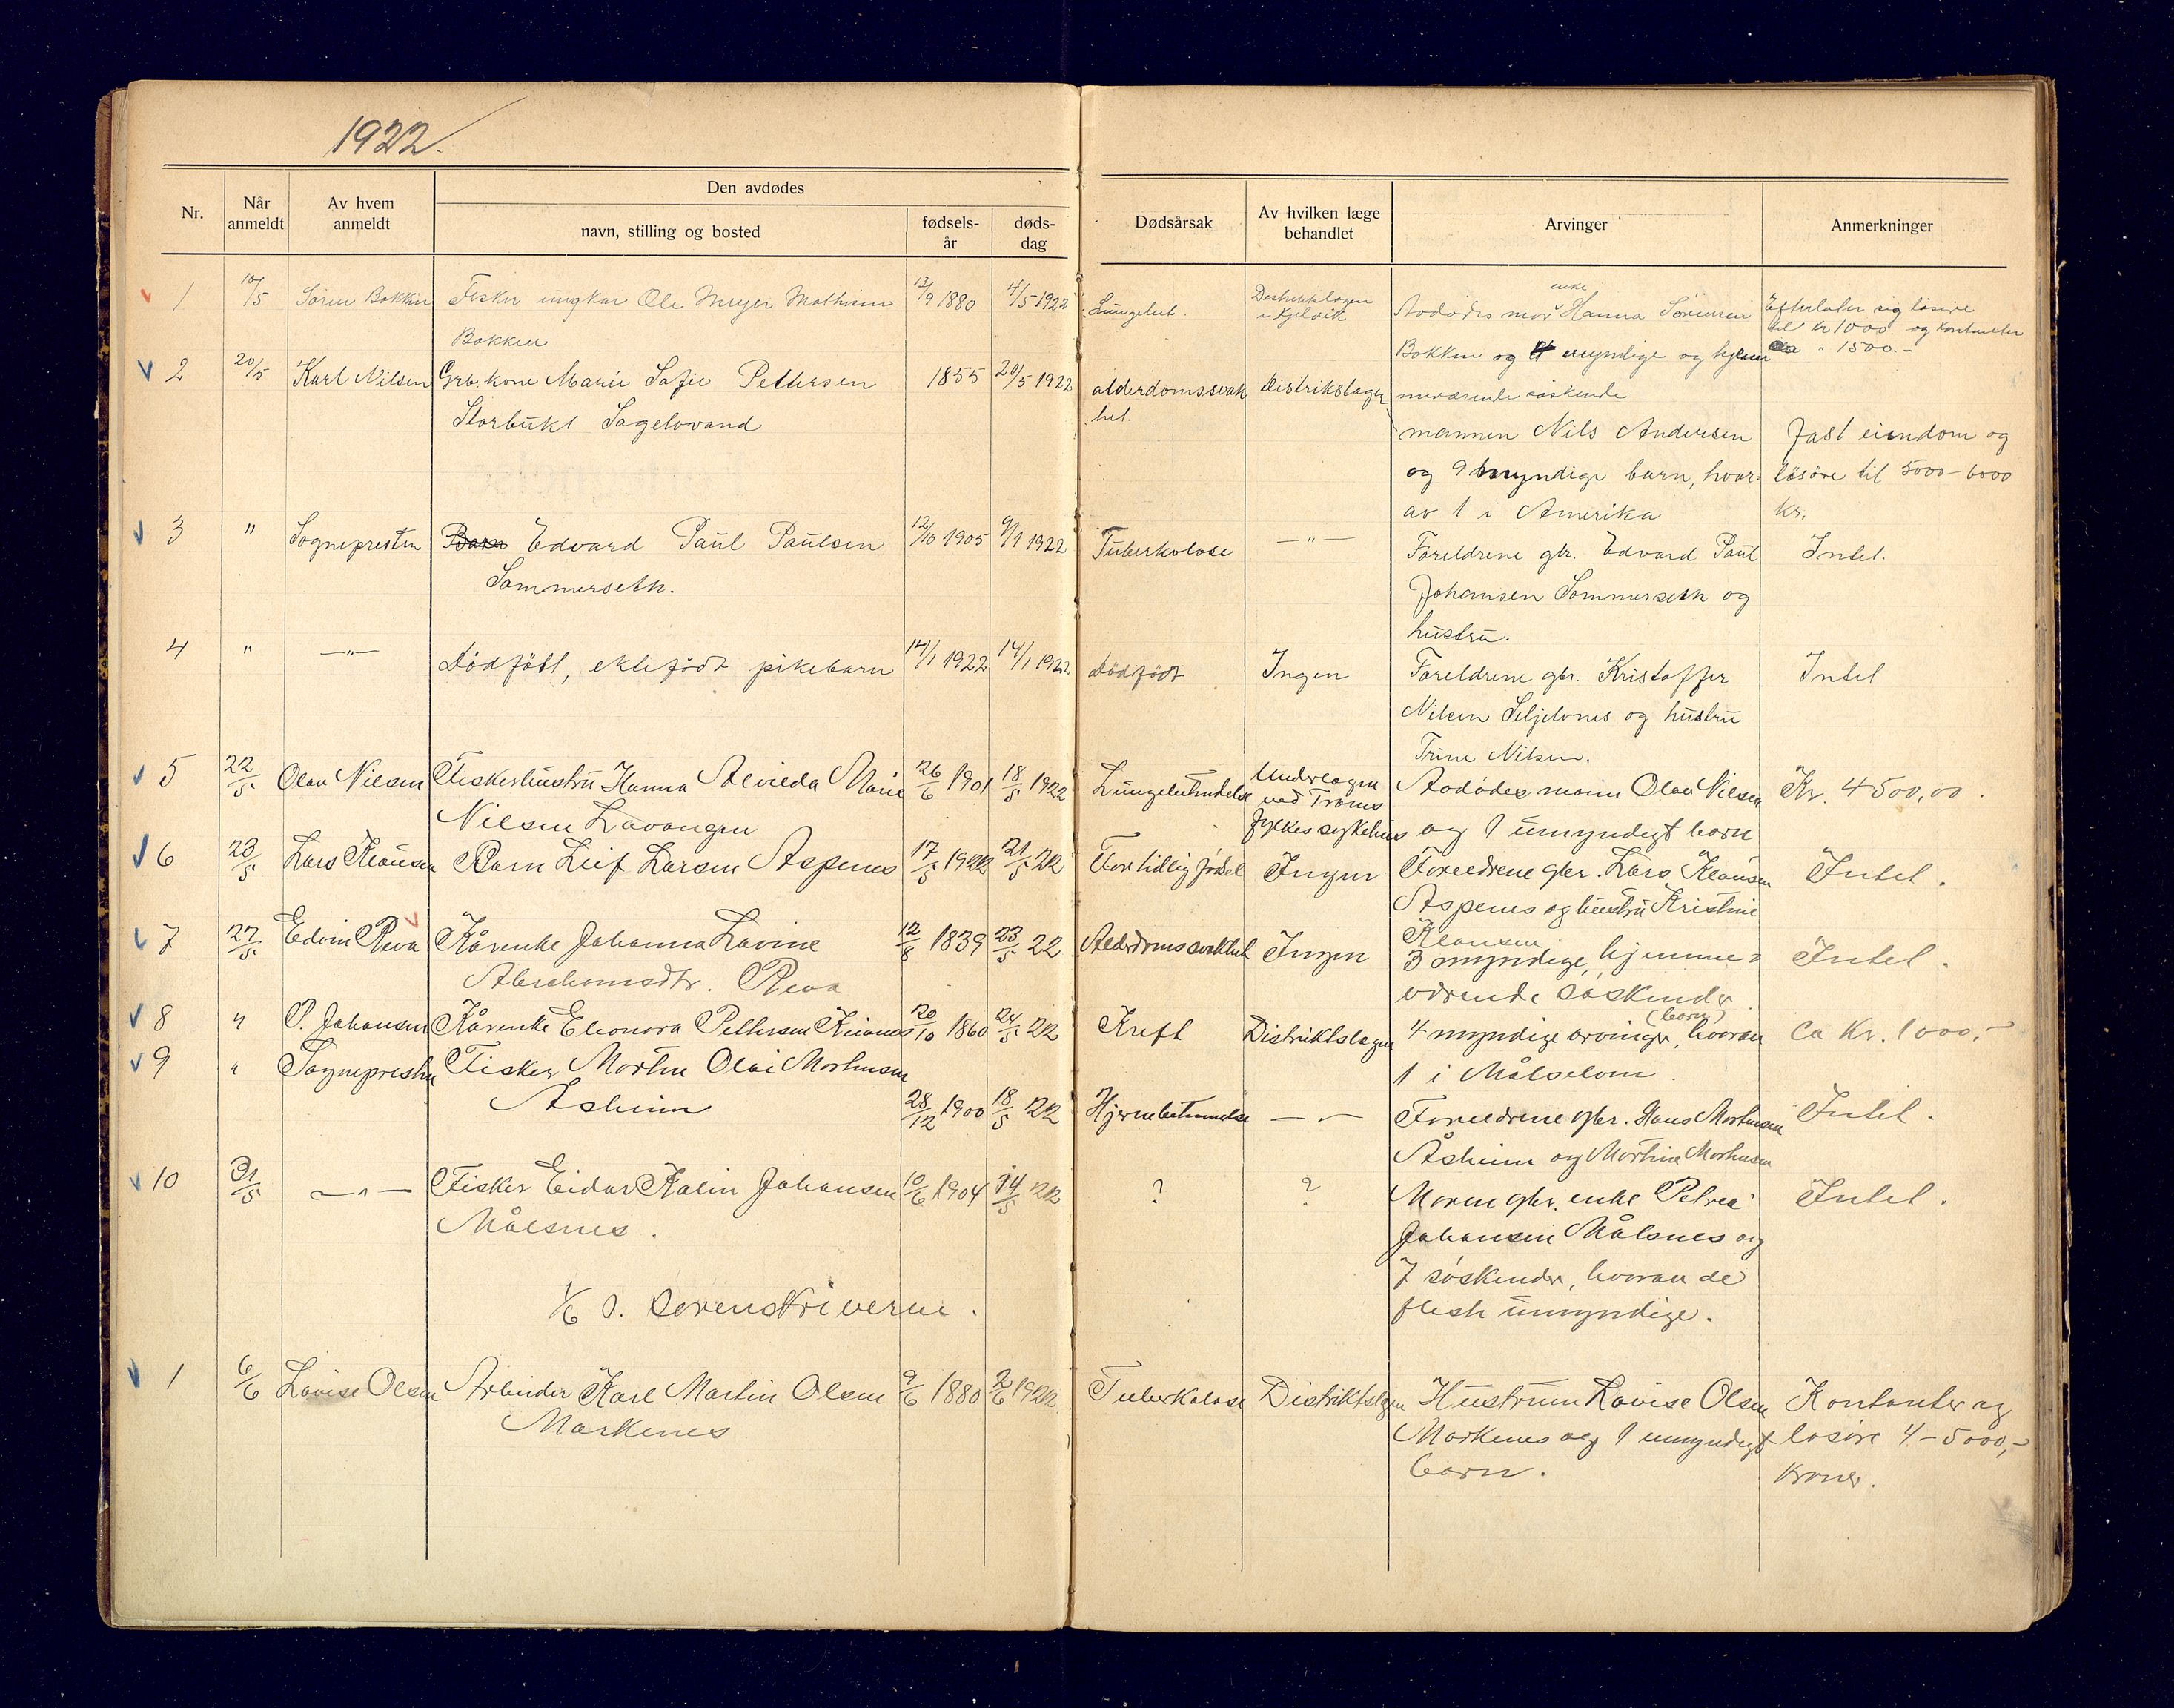 1922.
Den avdødes
Nr. Når anmeldt Av hvem anmeldt navn, stilling og bosted fødsels-år døds-dag Dødsårsak Av hvilken læge behandlet Arvinger Anmerkninger
1 10/5 Sören Bakken Fisker ungkar Ole Meyer Mathisen 4/5 1922 Lungebet. Distriktslægen
Bakken 1880 i Kjelvik
Avdødes mor enke Hanna Sörensen
Bakken og myndige og hjem
meværende søskende
Efterlater sig løsøre
til kr 1000. og kontanter
" 1500.-
2 20/5 Karl Nilsen Grb. kone Marie Sofie Pettersen 1855 20/5 1922 alderdomssvak Distriktslægen
Storbukt Sagelvvand het.
mannen Nils Andersen
og 9 myndige barn, hvor-
av 1 i Amerika
Fast eiendom og
løsøre til 5000-6000
kr.
3 " Sognepresten Barn Edvard Paul Paulsen 12/10 1905 9/1 1922 Tuberkolose —"—
Sommerseth.
Foreldrene gbr. Edvard Paul
Johansen Sommerseth og
hustru.
Intet.
4 " —"— Dødfødt, ektefødt pikebarn 14/1 1922 14/1 1922 Dødfødt Ingen
Foreldrene gbr. Kristoffer
Nilsen Seljelvnes og hustru
Trine Nilsen.
Intet
5 22/5 Olav Nilsen Fiskerhustru Hanna Alvilda Marie 26/6 1901 18/5 1922 Lungebetændelse Underlægen
Nilsen Lavangen ved Troms
fylkes sykehus
Avdødes mann Olav Nilsen
og 1 umyndigt barn
Kr. 4500,00.
6 23/5 Lars Klausen Barn Leif Larsen Aspenes 17/5 1922 21/5 22 For tidlig fødsel Ingen
Foreldrene gbr. Lars Klausen
Aspenes og hustru Kristine
Klausen
Intet.
7 27/5 Edvin Reva Kårenke Johanna Lavine 12/8 1839 23/5 22 Alderdomssvakhet Ingen
Abrahamsdtr. Reva
3 myndige, hjemme-
værende søskender.
Intet.
8 " P. Johansen Kårenke Eleonora Pettersen 20/10 1860 24/5 22 Kreft Distriktslægen
4 myndige arvinger (barn), hvorav
1 i Målselven.
ca Kr. 1000,-
9 " Sognepresten Fisker Morten Olai Mortensen
Asheim 28/12 1900 18/5 22 Hjernebetennelse — " —
Foreldrene gbr. Hans Mortensen
Åsheim og Martine Mortensen
Intet.
10 31/5 — " — Fisker Eidar Kalin Johansen 10/6 1904 14/5 22 ? ?
Målsnes.
Moren gbr. enke Petrea
Johansen Målsnes og
7 søskender, hvorav de
fleste umyndige.
Intet.
1/6 S. Sorenskriveren.
1 6/6 Lovise Olsen Arbeider Karl Martin Olsen 9/6 1880 2/6 1922 Tuberkolose Distriktslægen
Markenes
Hustruen Lovise Olsen
Markenes og 1 umyndigt
barn.
Kontanter og
løsøre 4-5000,-
kroner.